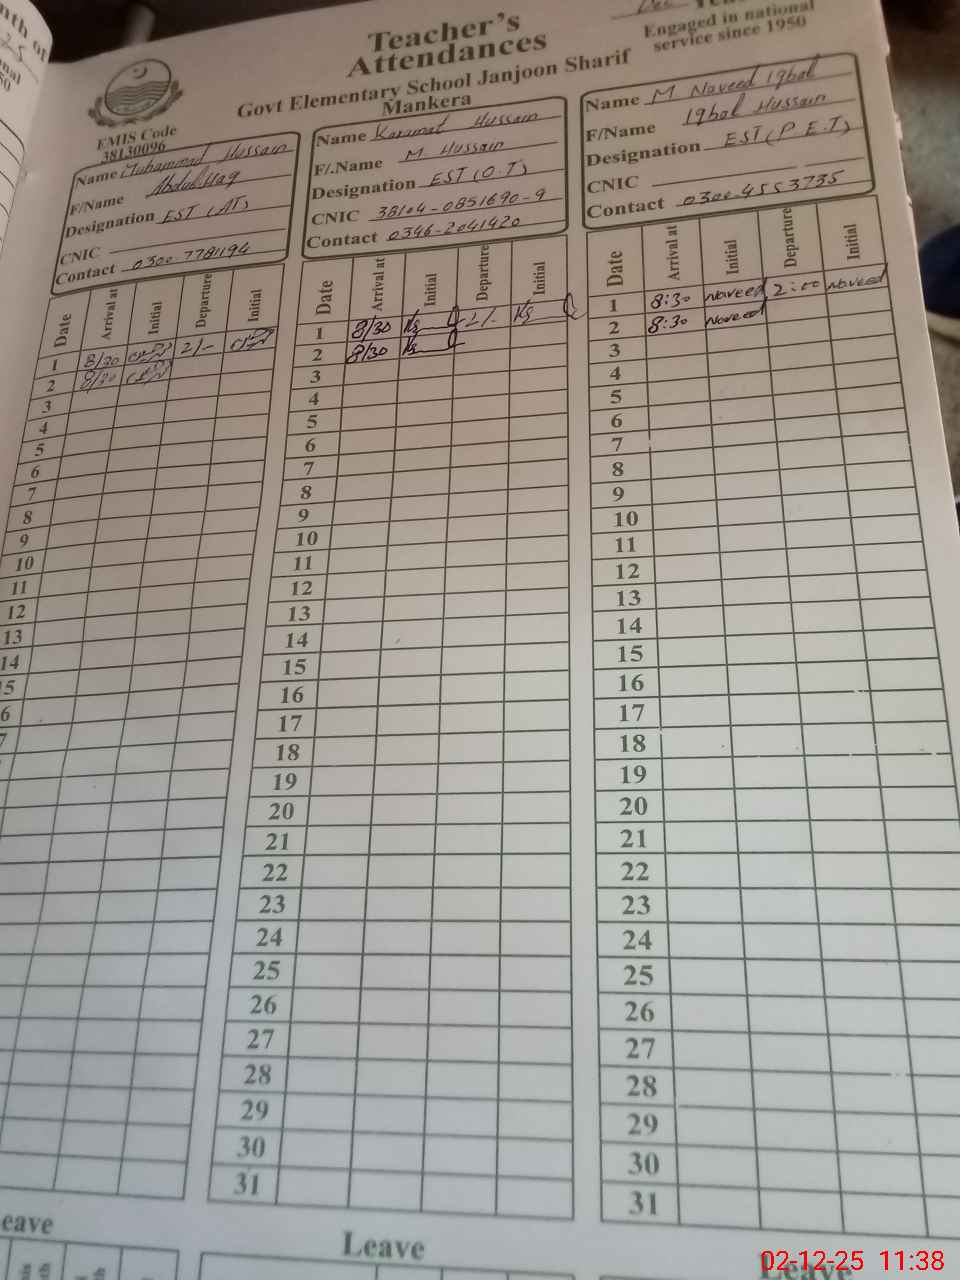 Teacher's
Attendances
Dec
Engaged in national
service since 1950
Govt Elementary School Janjoon Sharif
Mankera
EMIS Code
38130096
Name Muhammad Hussain
F/Name Abdul Haq
Designation EST (AT)
CNIC
Contact 0300 7781194
Date Arrival at Initial Departure Initial
1 8/30 2/-
2 8/30
3
4
5
6
7
8
9
10
11
12
13
14
Name Karamat Hussain
F/.Name M. Hussain
Designation EST (O.T)
CNIC 38104-0851690-9
Contact 0346-2041420
Date Arrival at Initial Departure Initial
1 8/30 2/-
2 8/30
3
4
5
6
7
8
9
10
11
12
13
14
15
16
17
18
19
20
21
22
23
24
25
26
27
28
29
30
31
Leave
Name M Naveed Iqbal
F/Name Iqbal Hussain
Designation EST (P.E.T)
CNIC
Contact 0300-4553735
Date Arrival at Initial Departure Initial
1 8:30 Naveed 2:00 Naveed
2 8:30 Naveed
3
4
5
6
7
8
9
10
11
12
13
14
15
16
17
18
19
20
21
22
23
24
25
26
27
28
29
30
31
Leave
02-12-25 11:38